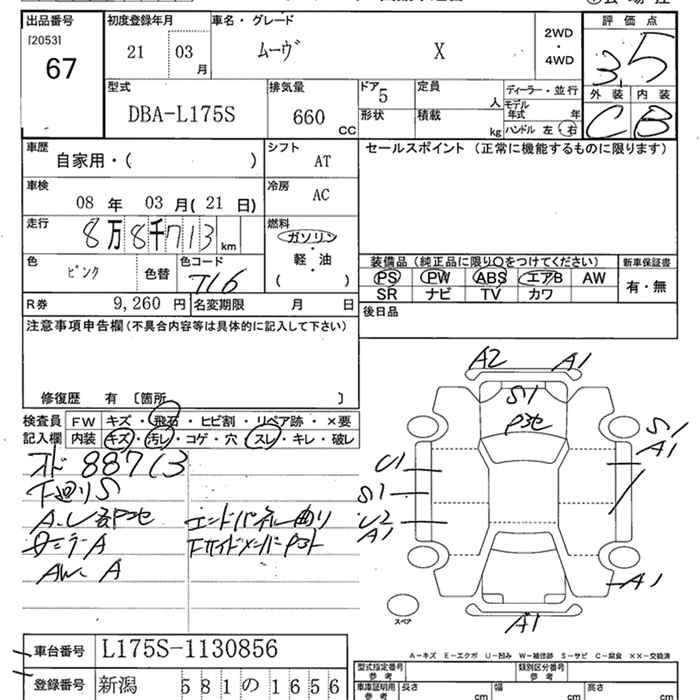 出品番号
[2053]
67
初度登録年月
21 03
月
車名・グレード
ムーヴ X
2WD
・
4WD
評価点
3.5
外装 内装
C B
型式
DBA-L175S
排気量
660
CC
ドア
5
形状
定員
人
積載
kg
ディーラー・並行
モデル
年式 年
ハンドル 左・右
車歴
自家用・( )
シフト
AT
セールスポイント (正常に機能するものに限ります)
車検
08 年 03 月(21 日)
冷房
AC
走行
8万8千713
km
燃料
ガソリン
軽・油
( )
色
ピンク
色替
色コード
T16
装備品(純正品に限り○をつけてください)
PS PW ABS エアB AW
SR ナビ TV カワ
新車保証書
有・無
R券 9,260 円
名変期限 月 日
後日品
注意事項申告欄(不具合内容等は具体的に記入して下さい)
修復歴 有 〔箇所 〕
検査員
記入欄
FW キズ・飛石・ヒビ割・リペア跡・×要
内装 キズ・汚レ・コゲ・穴・スレ・キレ・破レ
オド 88713
下廻りS
エンドパネル曲り
AW A
A2 A1
S1
S1
A1
U1
S1
U2
A1
A1
A1
スペア
A-キズ E-エクボ U-凹み W-補修跡 S-サビ C-腐食 XX-交換済
車台番号 L175S-1130856
登録番号 新潟 581 の 1656
型式指定番号
参考
類別区分番号
参考
車庫証明用
参考
長さ cm
幅 cm
高さ cm